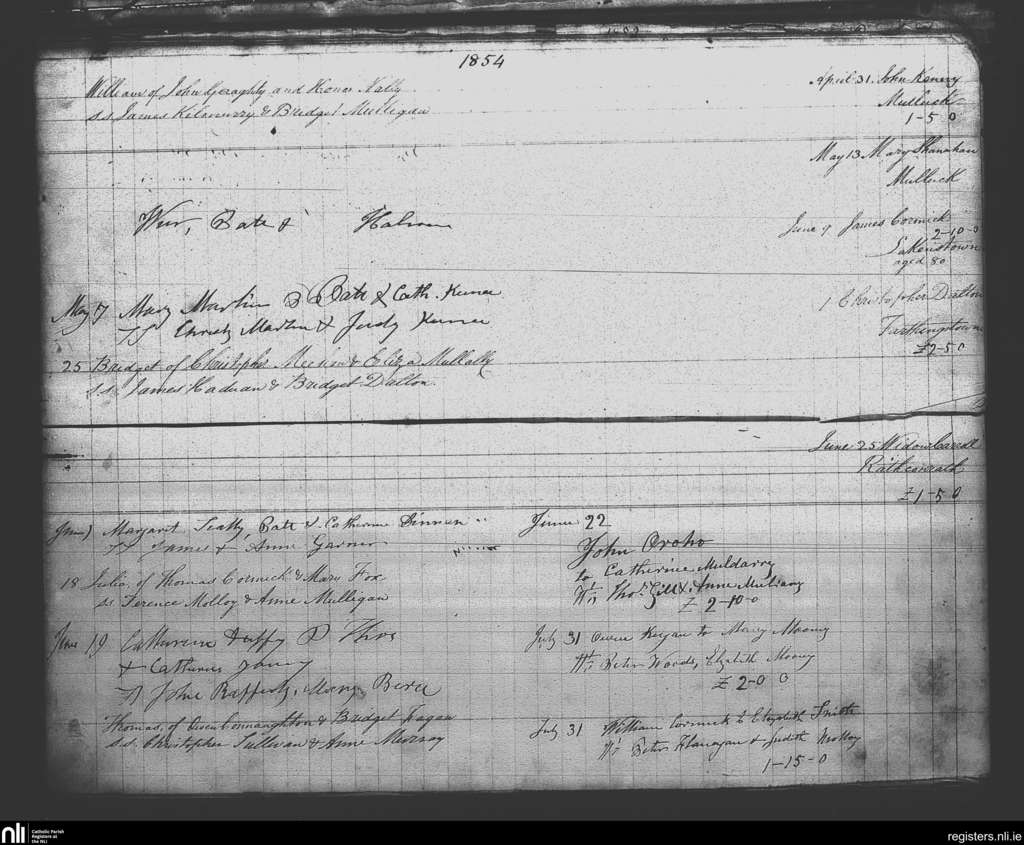 1854
William of John Geraghty and Honor Nally
ss James Kilmurry & Bridget Mulligan
April 31. John Kenny
Mulluck
1-5 0
May 13 Mary Shanahan
Mulluck
Weir, Patk &
June 9 James Cormick
2-10-0
aged 80
May 7 Mary Martin P Patk & Cath. Keena
SS Christy Martin & Judy Keena
1 Christopher Dalton
Farthingstown
£2-5 0
25 Bridget of Christophr & Eliza Mullally
ss James & Bridget Dalton.
June 25 Widow Carroll
Rathconrath
£1-5 0
June Margaret Scally, Patk & Catherine Dinnen
SS James & Anne Garner
18 Julia of Thomas Cormick & Mary Fox
ss Terence Molloy & Anne Mulligan
June 19 Catherine Duffy P Thos
& Catherine
SS John Rafferty, Mary
Thomas, of Owen Connaughton & Bridget Fagan
ss. Christopher Sullivan & Anne Murray
June 22
John Oroho
to Catherine Muldarry
Wts Thos. Gill & Anne
£ 2-10-0
July 31 Owen Keegan to Mary Mooney
Wts Peter Woods, Elizabeth Mooney
£ 2-0 0
July 31 William Cormick to Elizabeth Smith
Wts Peter Flanagan & Judith Molloy
1-15-0
nli
Catholic Parish
Registers at
the NLI
registers.nli.ie